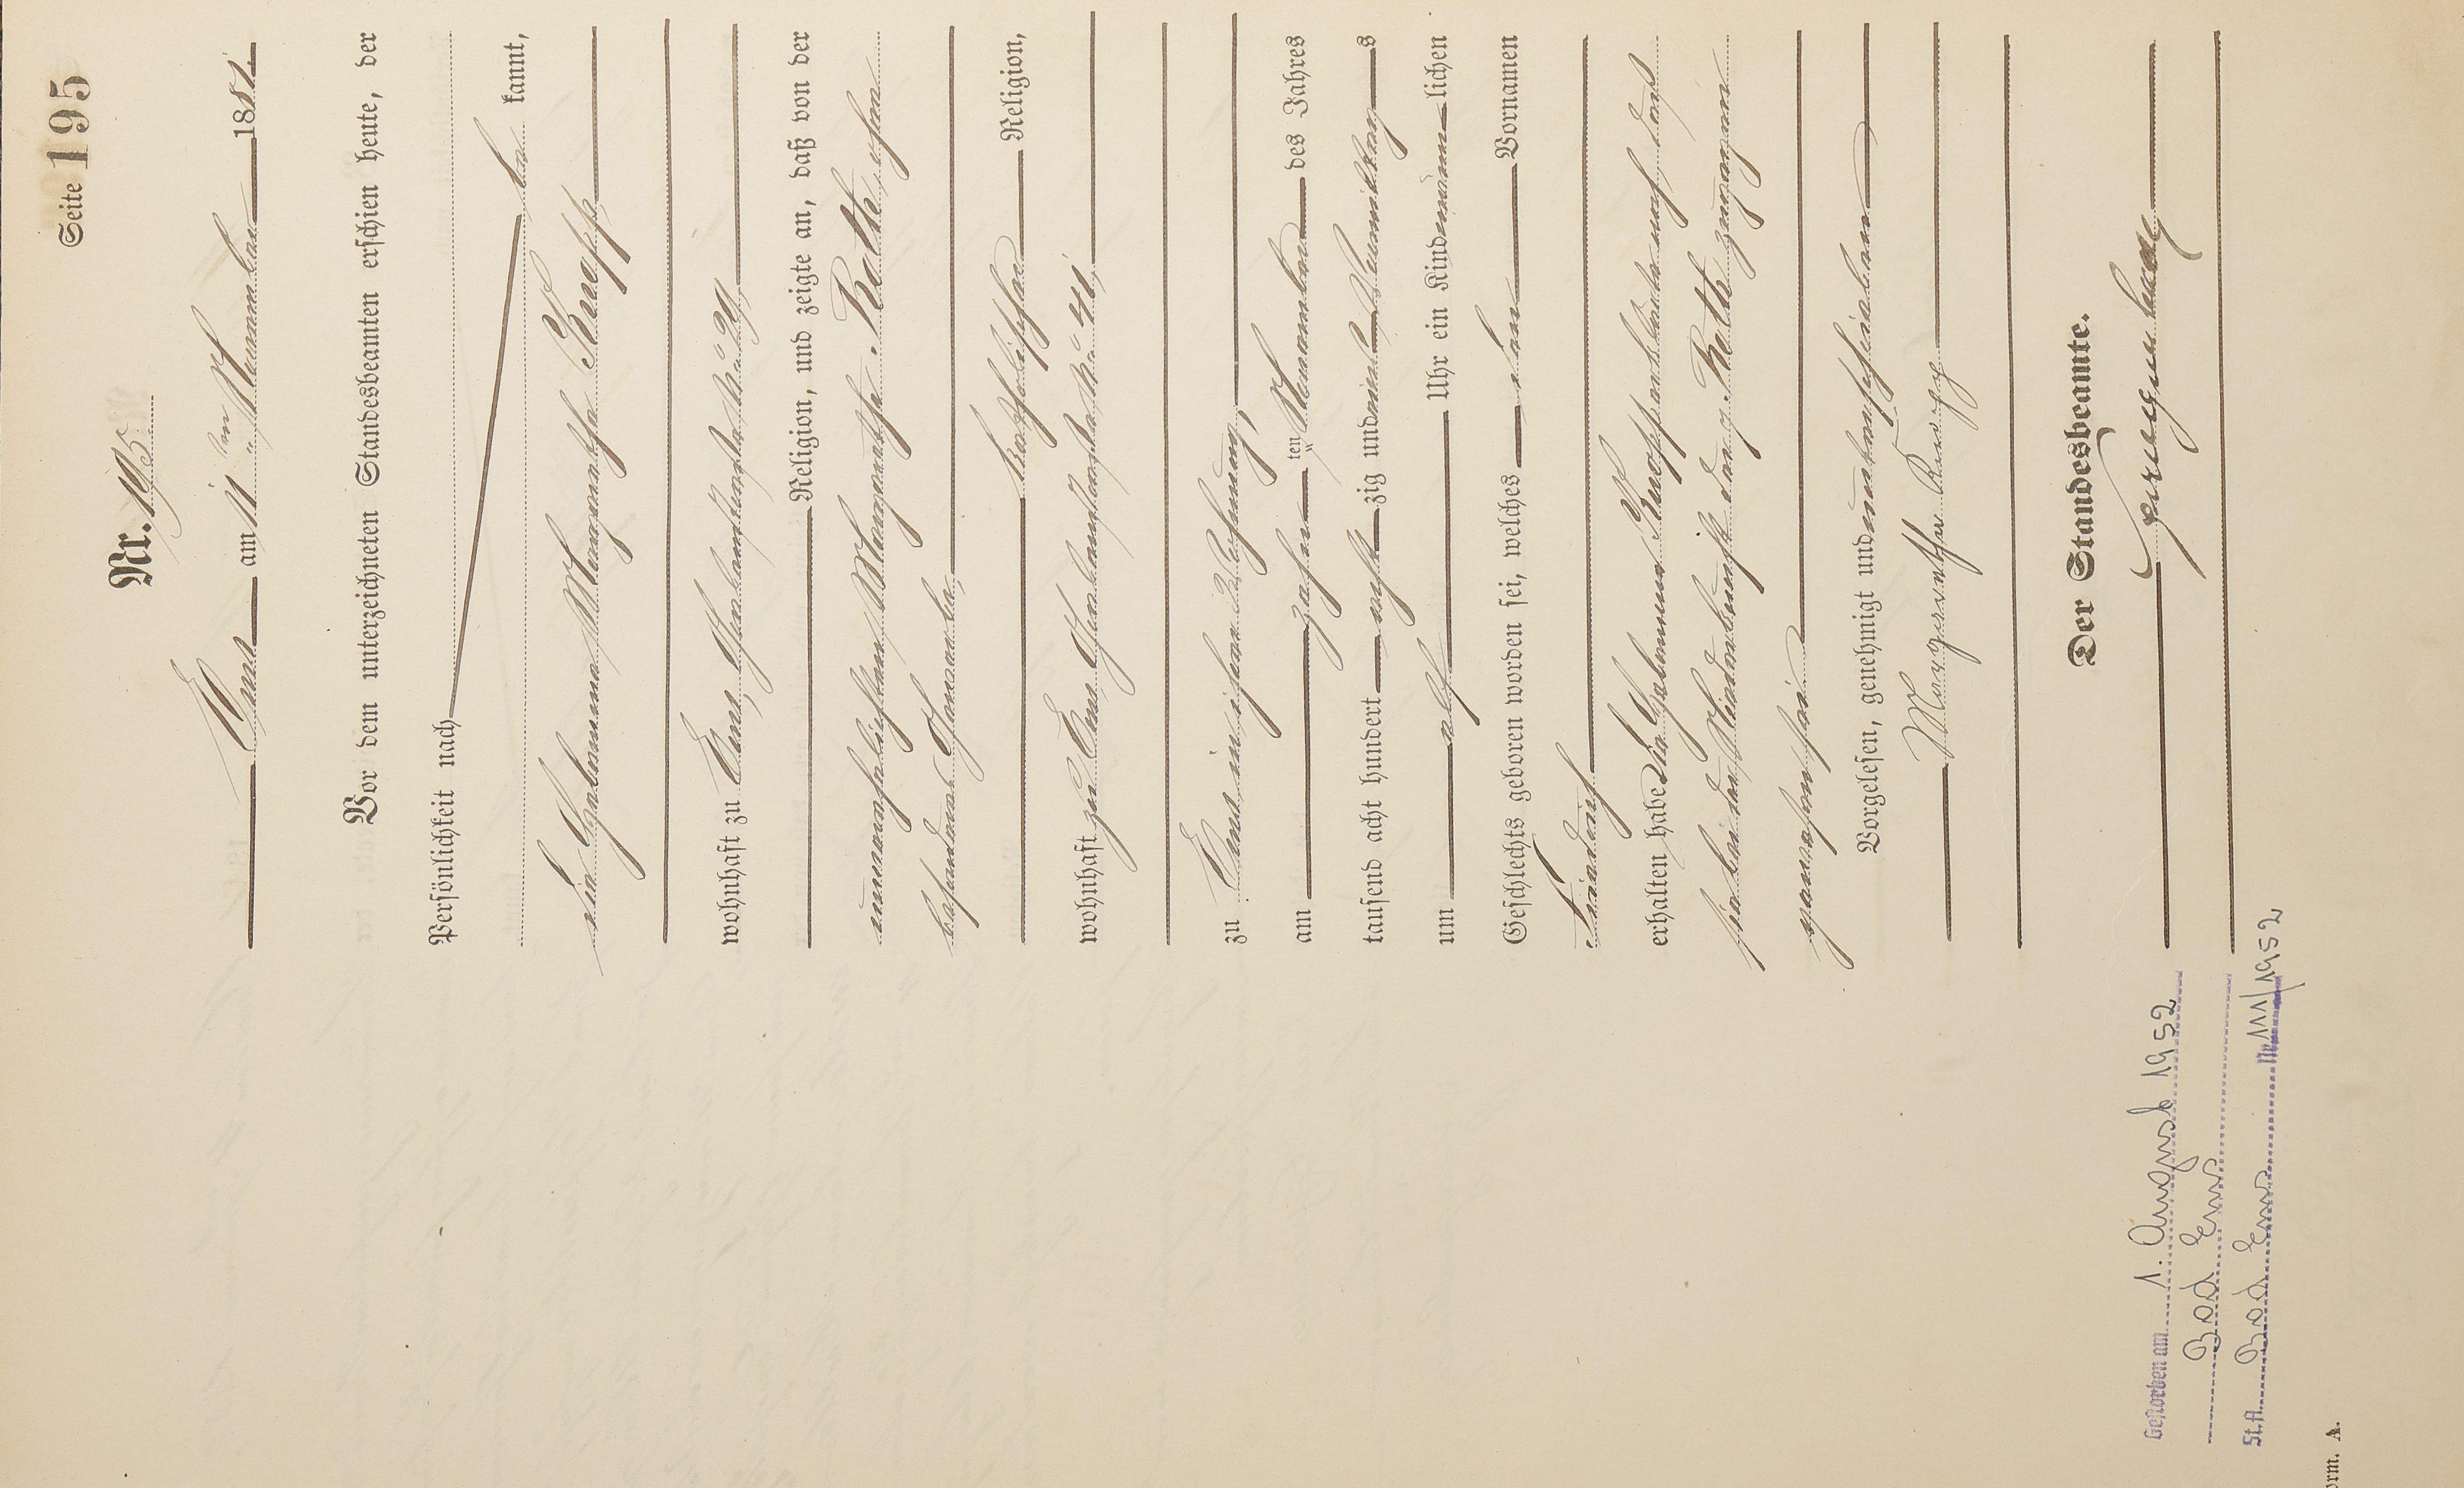 Seite 195
Nr. 195
Ems am 11 ten November 1881.
Vor dem unterzeichneten Standesbeamten erschien heute, der
Persönlichkeit nach
be kannt,
die Hebamme Margaretha Knopp,
wohnhaft zu Ems,
Religion, und zeigte an, daß von der
unverehelichten Margarethe Roth, ohne
besonderes Gewerbe,
katholischer Religion,
wohnhaft zu Ems,
zu Ems in ihrer Wohnung,
am zehnten November des Jahres
tausend acht hundert acht zig und eins
um elf Uhr ein Kind männ lichen
Geschlechts geboren worden sei, welches den Vornamen
Friedrich
erhalten habe. Die Hebamme Knopp erklärte noch daß
sie bei der Niederkunft der p. Roth zugegen
gewesen sei
Vorgelesen, genehmigt und unterschrieben
Margaretha Knopp
Der Standesbeamte.
Gestorben am 1. August 1952
Bad Ems
St.A. Bad Ems Nr. 111/1952
orm. A.